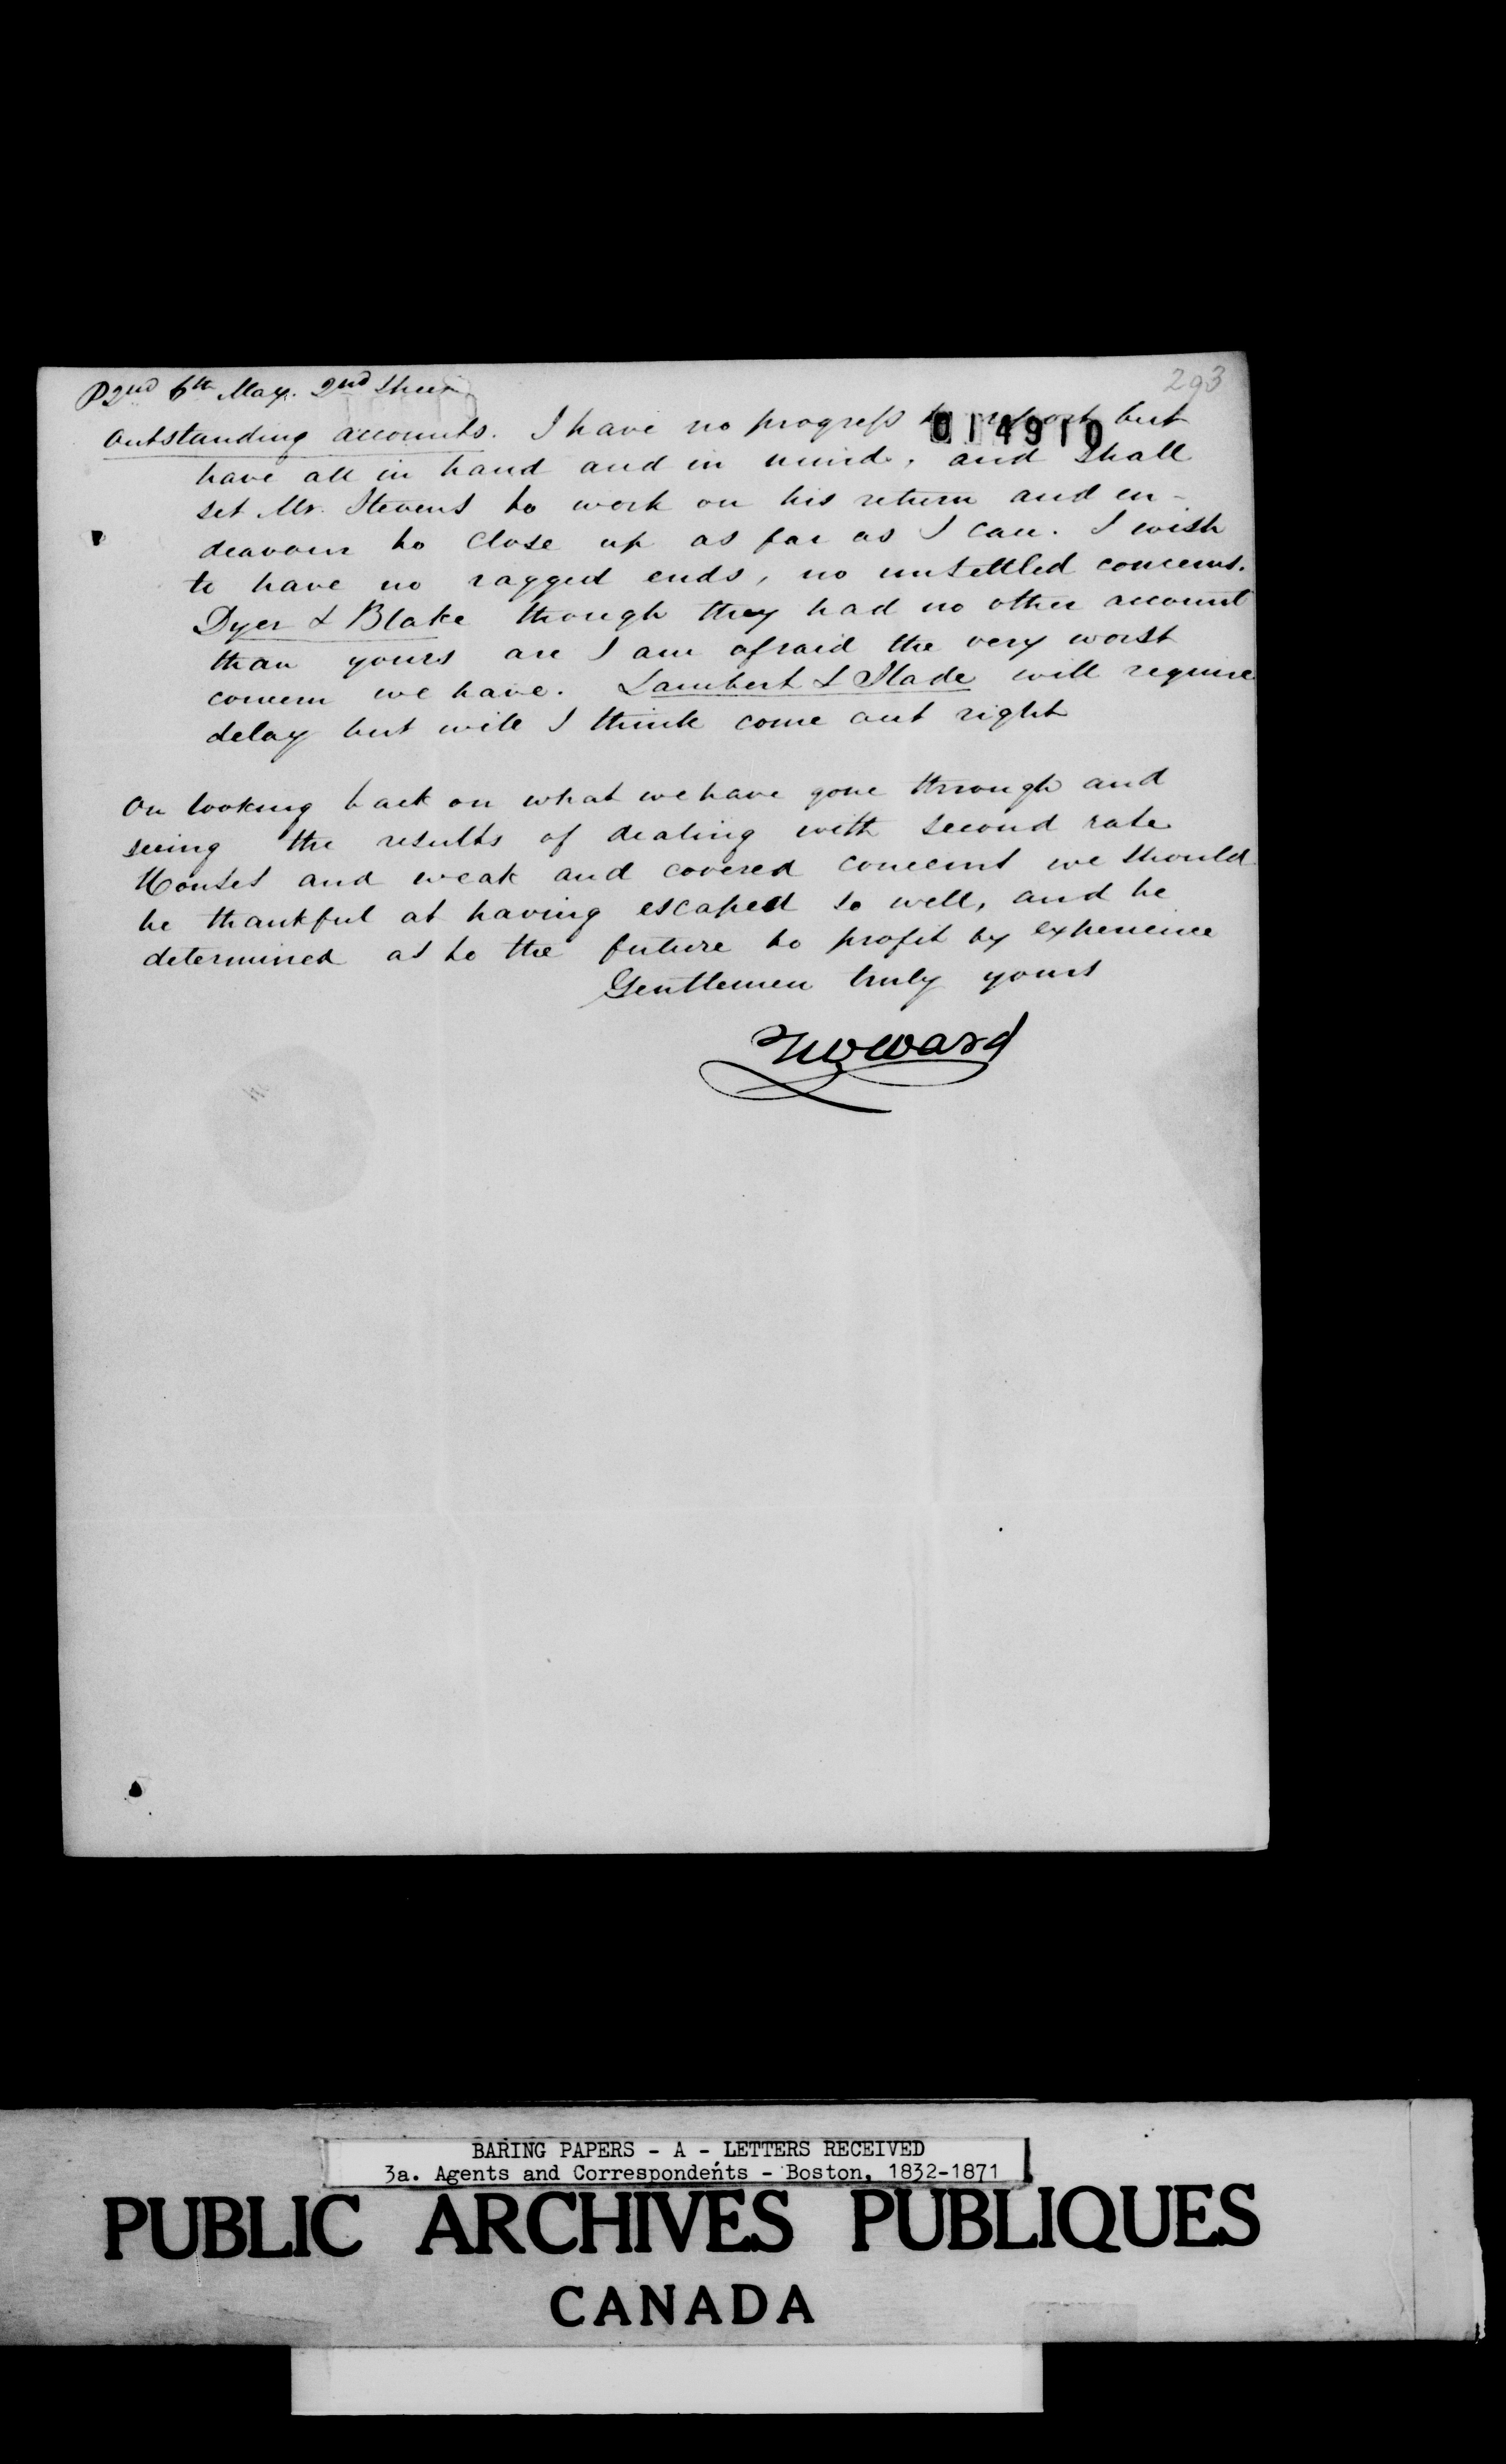 P 2nd 6th May. 2nd Sheet
293
Outstanding accounts. I have no progress to report but
014910
have all in hand and in mind, and shall
set Mr. Stevens to work on his return and en-
deavour to close up as far as I can. I wish
to have no ragged ends, no unsettled concerns.
Dyer & Blake though they had no other account
than yours are I am afraid the very worst
concern we have. Lambert & Slade will require
delay but will I think come out right
On looking back on what we have gone through and
seeing the results of dealing with second rate
Houses and weak and covered concerns we should
be thankful at having escaped so well, and be
determined as to the future to profit by experience
Gentlemen truly yours
TWWard
BARING PAPERS - A - LETTERS RECEIVED
3a. Agents and Correspondents - Boston, 1832-1871
PUBLIC ARCHIVES PUBLIQUES
CANADA